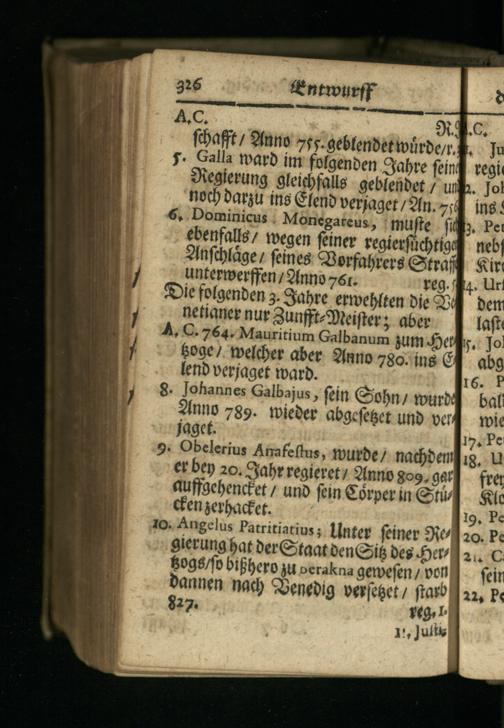 326 Entwurff
A.C. R.
schafft / Anno 755. geblendet würde / r.
5. Galla ward im folgenden Jahre seine
Regierung gleichfalls geblendet / un
noch darzu ins Elend verjaget / An. 756
6. Dominicus Monegareus, muste sich
ebenfalls / wegen seiner regiersüchtige
Anschläge / seines Vorfahrers Straff
unterwerffen / Anno 761. reg.
Die folgenden 3. Jahre erwehlten die Ve
netianer nur Zunfft-Meister; aber
A. C. 764. Mauritium Galbanum zum Her-
tzoge / welcher aber Anno 780. ins E-
lend verjaget ward.
8. Johannes Galbajus, sein Sohn / wurde
Anno 789. wieder abgesetzet und ver-
jaget.
9. Obelerius Anafestus, wurde / nachdem
er bey 20. Jahr regieret / Anno 809. gar
auffgehencket / und sein Cörper in Stü-
cken zerhacket.
10. Angelus Patritiatius; Unter seiner Re-
gierung hat der Staat den Sitz des Her-
tzogs / so bißhero zu Derakna gewesen / von
dannen nach Venedig versetzet / starb
827. reg. 1.
11. Justi-
A.C.
Ju
regie
12. Joh
ins
13. Pet
nebs
Kir
14. Urs
dem
laste
15. Jo
abg
16. P
bal
wie
17. Pe
18. U
frey
Klo
19. Pe
20. Pe
21. C
sein
22. Pe